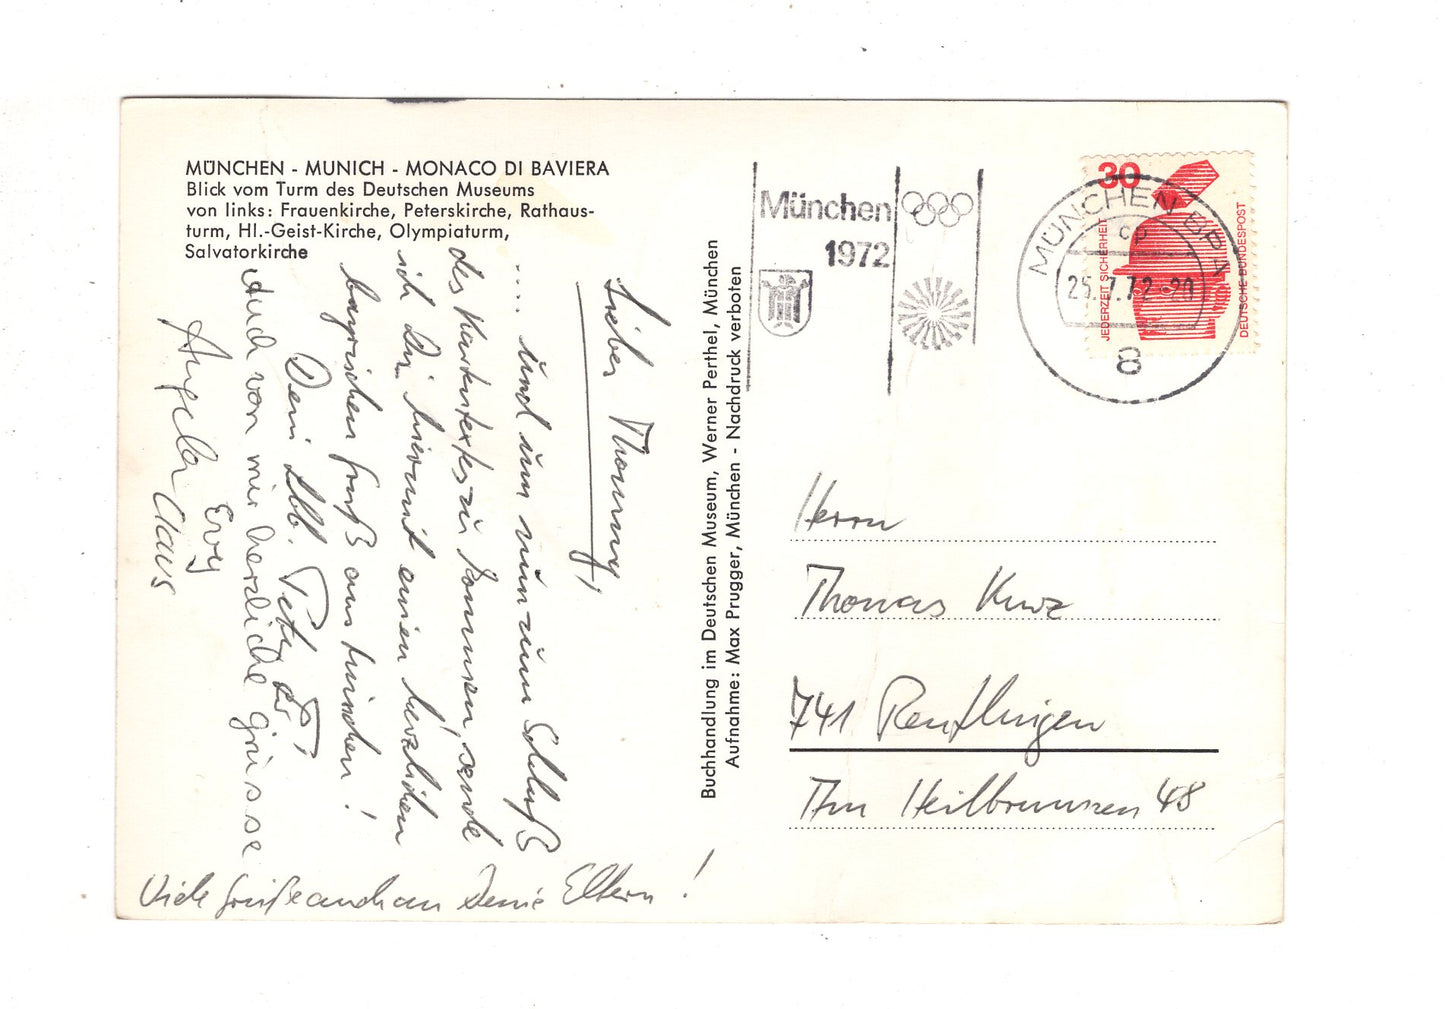 MÜNCHEN - MUNICH - MONACO DI BAVIERA
Blick vom Turm des Deutschen Museums
von links: Frauenkirche, Peterskirche, Rathaus-
turm, Hl.-Geist-Kirche, Olympiaturm,
Salvatorkirche
Lieber Thommy,
.... und um nun zum Schluß
des Kartentextes zu kommen, sende
ich Dir hiermit einen herzlichen
bayrischen Gruß aus München!
Dein Peter
Auch von mir herzliche Grüsse
Evy
Angela Claus
Viele Grüße auch an Deine Eltern!
Buchhandlung im Deutschen Museum, Werner Perthel, München
Aufnahme: Max Prugger, München - Nachdruck verboten
München
1972
MÜNCHEN BPA
cp
25.7.72-20
8
30
JEDERZEIT SICHERHEIT
DEUTSCHE BUNDESPOST
Herrn
Thomas Kurz
741 Reutlingen
Am Heilbrunnen 48